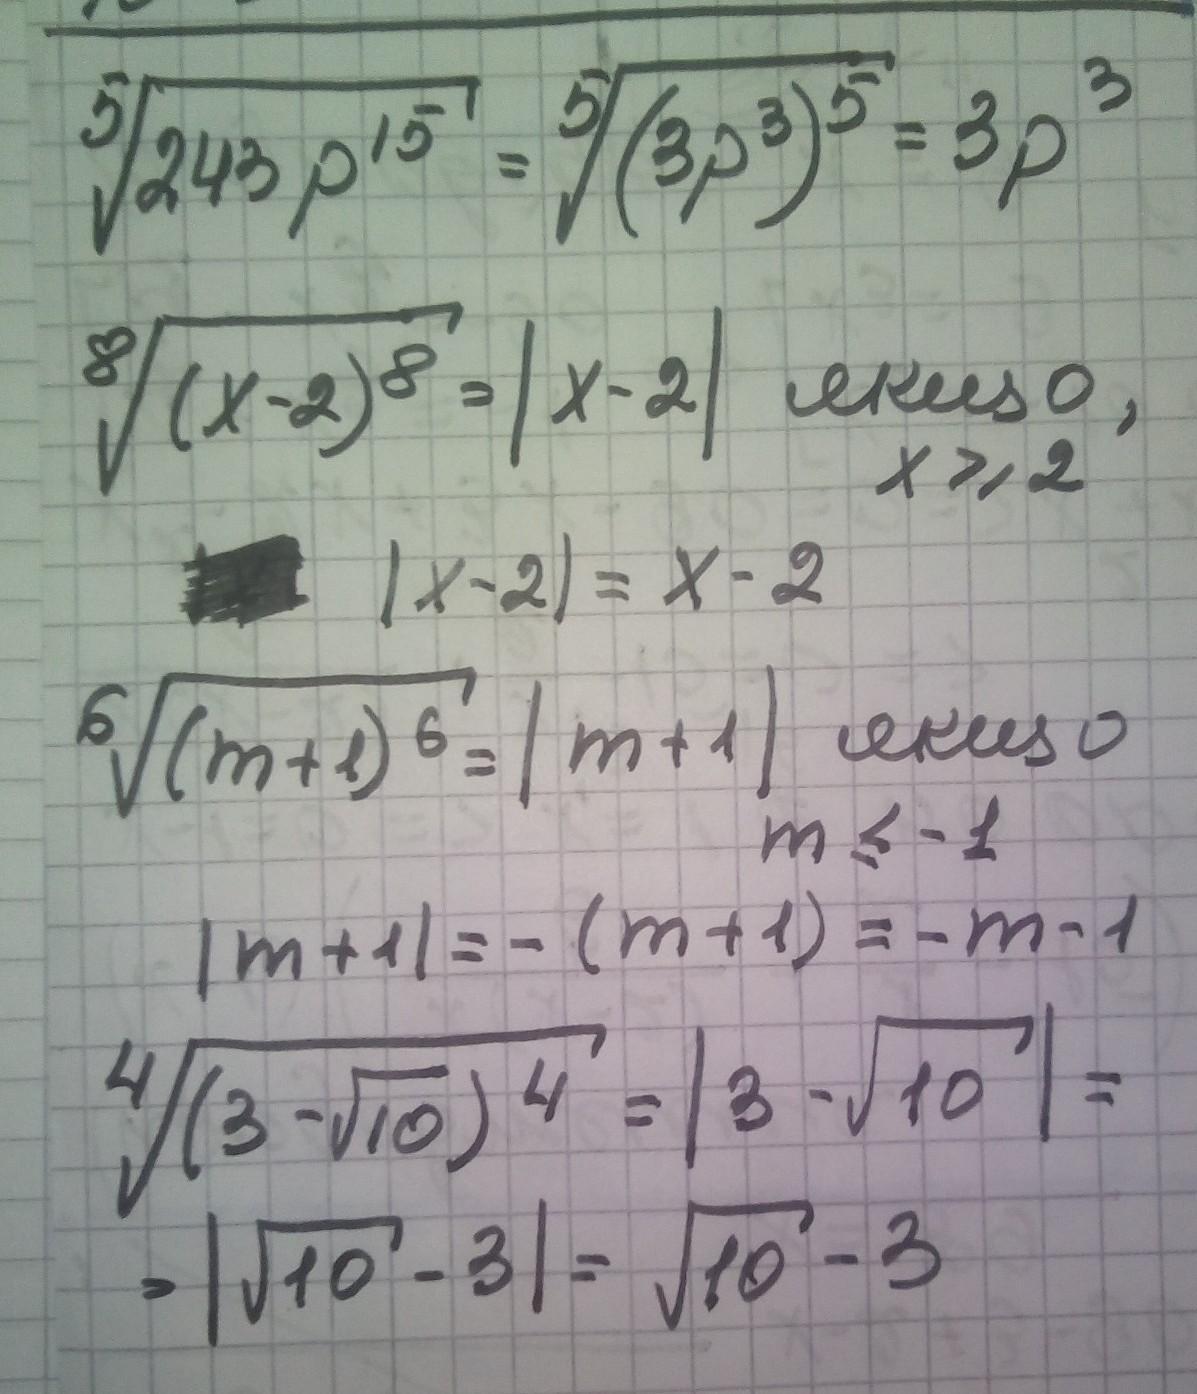 ⁵√243p¹⁵ = ⁵√(3p³)⁵ = 3p³
⁸√(x-2)⁸ = |x-2| якщо,
x ≥ 2
|x-2| = x-2
⁶√(m+1)⁶ = |m+1| якщо
m ≤ -1
|m+1| = -(m+1) = -m-1
⁴√(3-√10)⁴ = |3-√10| =
= |√10-3| = √10-3